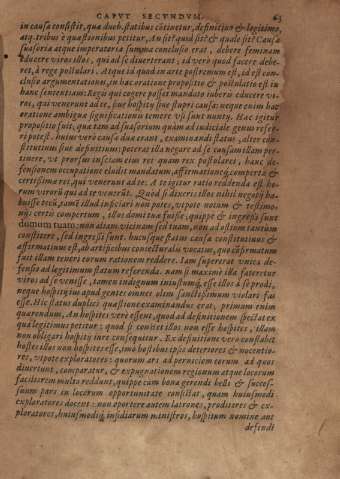 CAPVT SECVNDVM. 63
in causa consistit, qua duob. statibus cōtinetur, definitiuo & legitimo,
atq; tribus è quæstionibus petitur, An sit? quid sit? & quale sit? Causa
suasoria atque imperatoria summa conclusio erat, debere feminam
educere viros illos, qui ad se diuerterant; id verò quod facere debe-
ret, à rege postulari. Atque id quod in arte postremum est, id est con-
clusio argumentationum, in hac oratione propositio & postulatio est in
hanc sententiam: Regis qui cogere posset mandato iuberis educere vi-
ros, qui venerunt ad te, siue hospitij siue stupri causa: neque enim hac
oratione ambigua significationis temere vsi sunt nuntij. Hæc igitur
propositio fuit; quæ tam ad suasorium quàm ad iudiciale genus refer-
ri potest. huius verò causa duæ erant, examinandi status, alter con-
stitutiuus siue definitiuus: poterat illa negare ad se causam illam per-
tinere, vt prorsus inscia eius rei quam rex postulares, hanc de-
fensionem occupatione eludit mandatum, affirmationeq; comperta &
certissima rei, qui venerunt ad te. A te igitur ratio reddenda est ho-
rum virorū qui ad te venerūt. Quòd si dixeris illos nihil negotij ha-
buisse tecū, tamē illud inficiari non potes, vtpote notum & testimo-
nijs certis compertum, illos domi tuæ fuisse, quippe & ingressi sunt
domum tuam: non aliam vicinam sed tuam, non ad ostium tantùm
constitere, sed ingressi sunt. hucusque status causa constitutiuus &
affirmatiuus est, ab artificibus coniecturalis vocatus, quo cōfirmatum
fuit illam teneri eorum rationem reddere. Iam supererat vnica de-
fensio ad legitimum statum referenda. nam si maximè illa fateretur
viros ad se venisse, tamen indignum iniustumq́; esse illos à se prodi,
neque hospitij ius apud gentes omneis olim sanctissimum violari fas
esse. Hic status duplici quæstione examinandus erat, primùm enim
quærendum, An hospites verè essent, quod ad definitionem spectat ex
qua legitimus petitur: quod si constet illos non esse hospites, illam
non obligari hospitij iure consequetur. Ex definitione verò constabit
hostes illos non hospites esse, imo hostibus ipsis deteriores & nocentio-
res, vtpote exploratores: quorum ars ad perniciem eorum ad quos
diuertunt, comparatur, & expugnationem regionum atque locorum
faciliorem multo reddunt, quippe cùm bona gerendi belli & succes-
suum pars in locorum opportunitate consistat, quam huiusmodi
exploratores docent: non oportere autem latrones, proditores & ex-
ploratores, huiusmodiq́; insidiarum ministros, hospitum nomine aut
defendi